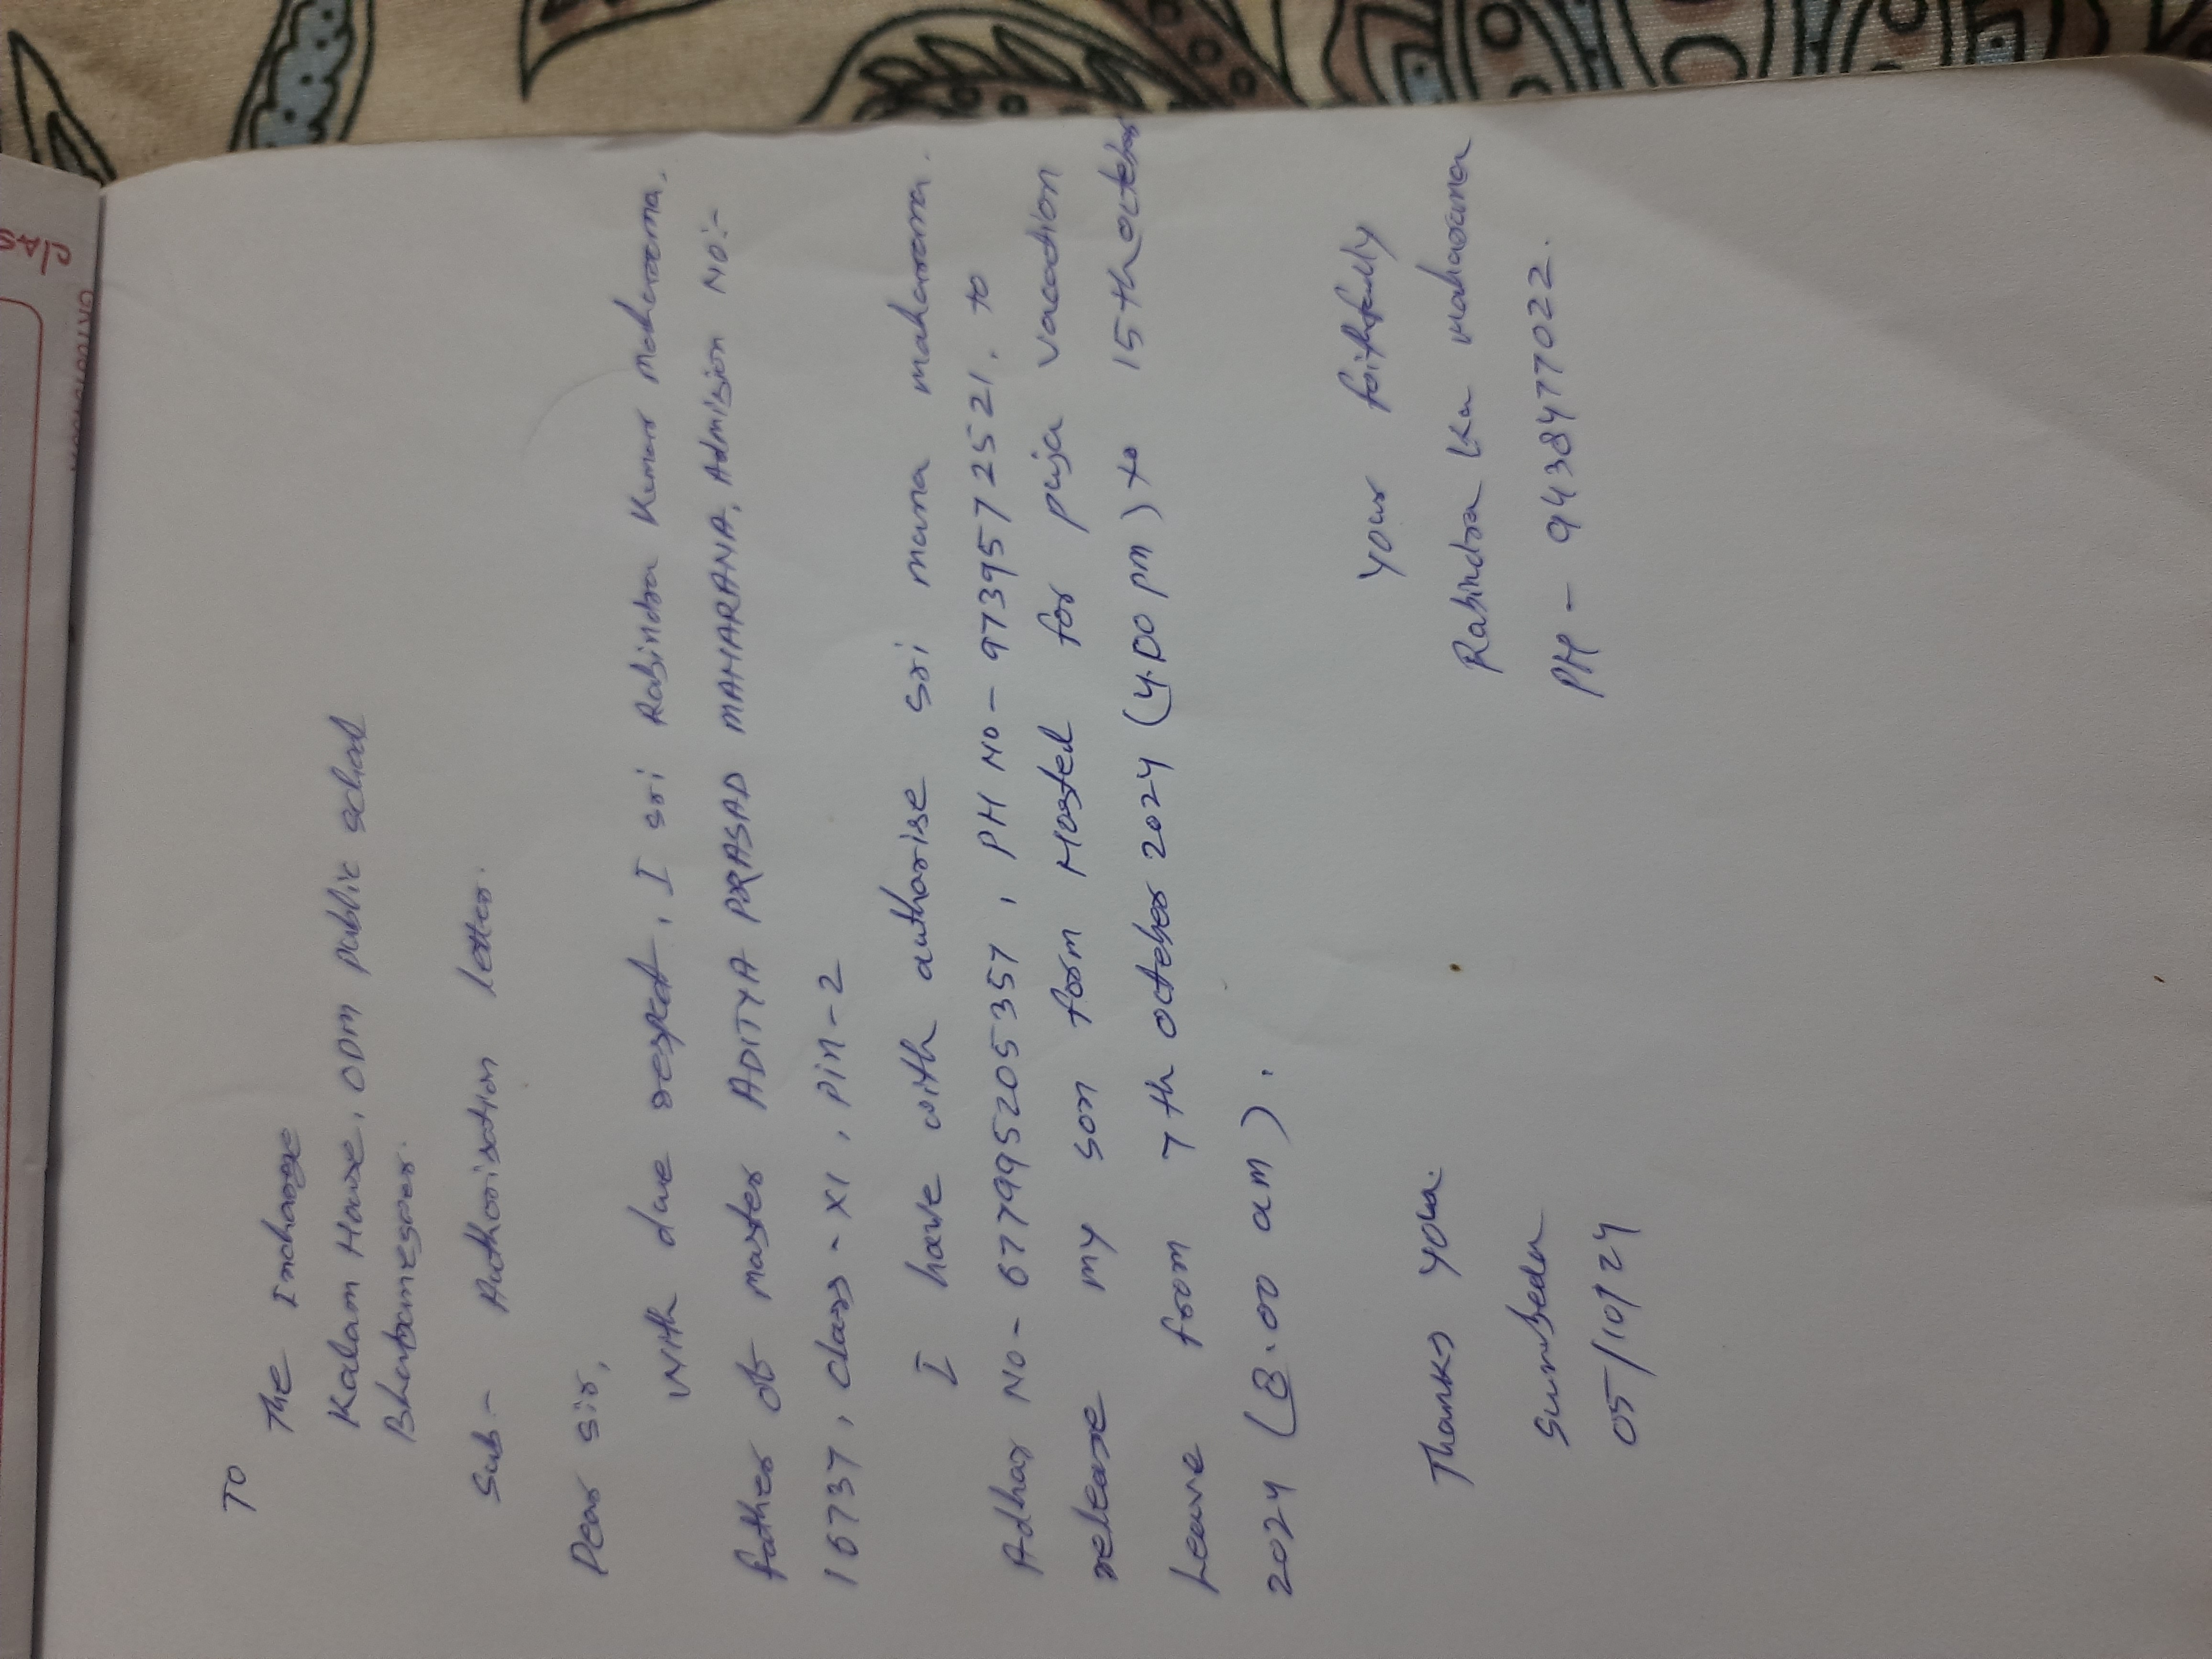 To
The Incharge
Kalam House, ODM public school
Bhubaneswar.
Sub:- Authorisation letter.
Dear Sir,
With due respect, I sri Rabindra Kumar maharana,
father of master ADITYA PRASAD MAHARANA, Admission NO:-
16737, class - XI, pin-2
I have with authorise sri muna maharana.
Adhar NO- 677995205357, PH NO- 9739572521, to
release my son from Hostel for puja vacation
Leave from 7th october 2024 (4.00 pm) to 15th october
2024 (8.00 am).
Thanks you.
your faithfully
Rabindra Ku maharana
PH - 9438477022.
Sunabeda
05/10/24